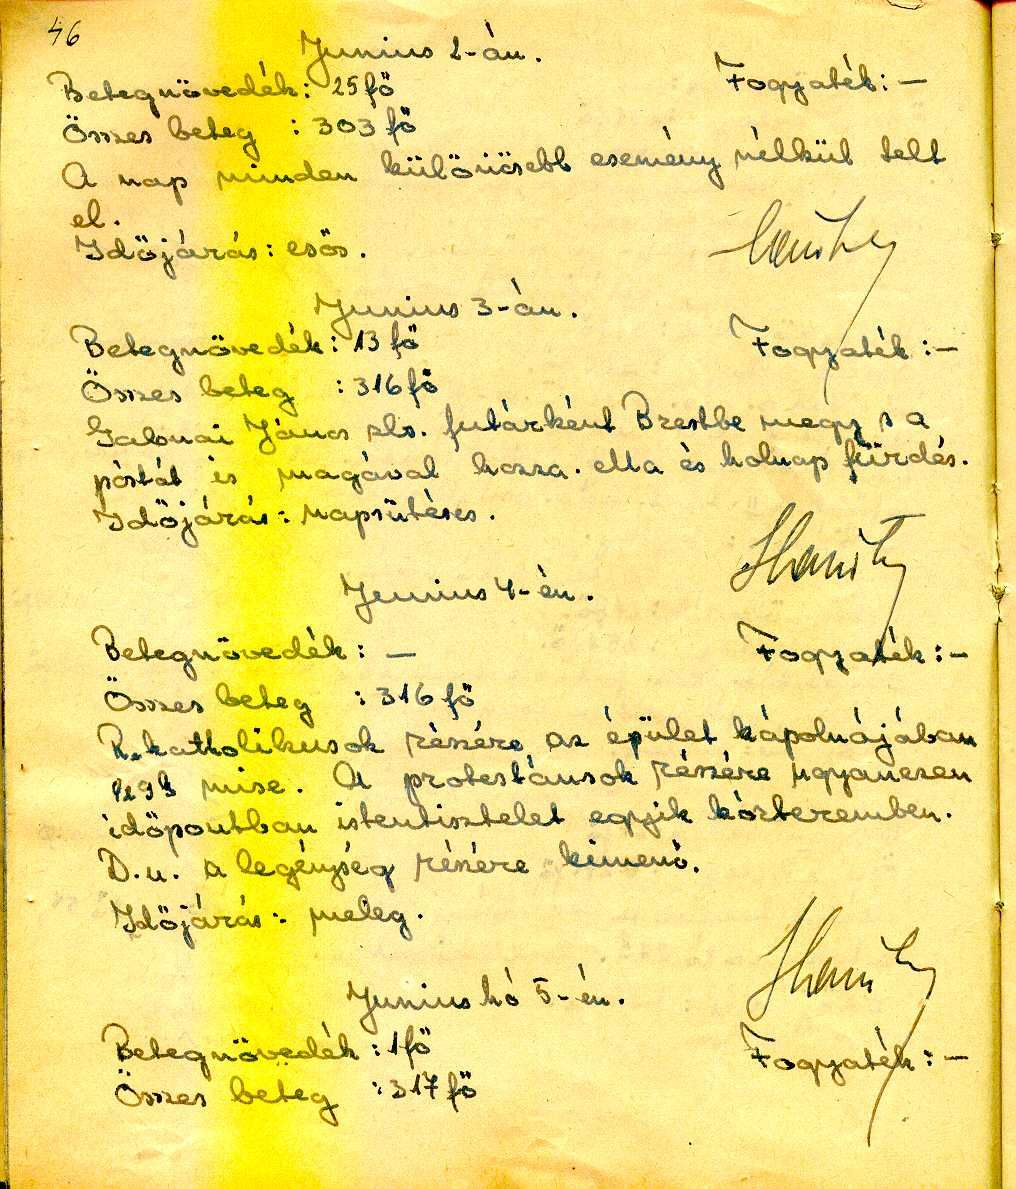 46
Junius 2-án.
Betegnövedék: 25 fő Fogyaték: —
Összes beteg : 303 fő
A nap minden különösebb esemény nélkül telt
el.
Időjárás: esős.
Junius 3-án.
Betegnövedék: 13 fő Fogyaték: —
Összes beteg : 316 fő
János futárként Brestbe megy s a
póstát is magával hozza. Ma és holnap fürdés.
Időjárás: napsütéses.
Junius 4-én.
Betegnövedék: — Fogyaték: —
Összes beteg : 316 fő
R. katholikusok részére az épület kápolnájában
mise. A protestánsok részére ugyanezen
időpontban istentisztelet egyik kórteremben.
D.u. a legénység részére kimenő.
Időjárás: meleg.
Junius hó 5-én.
Betegnövedék: 1 fő Fogyaték: —
Összes beteg : 317 fő